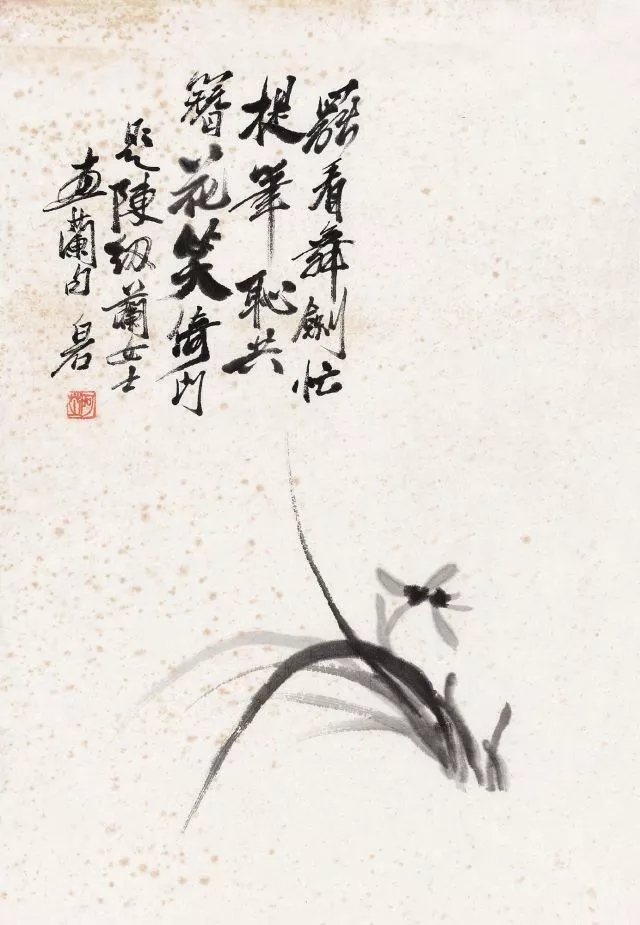 罷看舞劍忙
提筆恥共
簪花笑倚門
題陳紉蘭女士
畫蘭句 白石